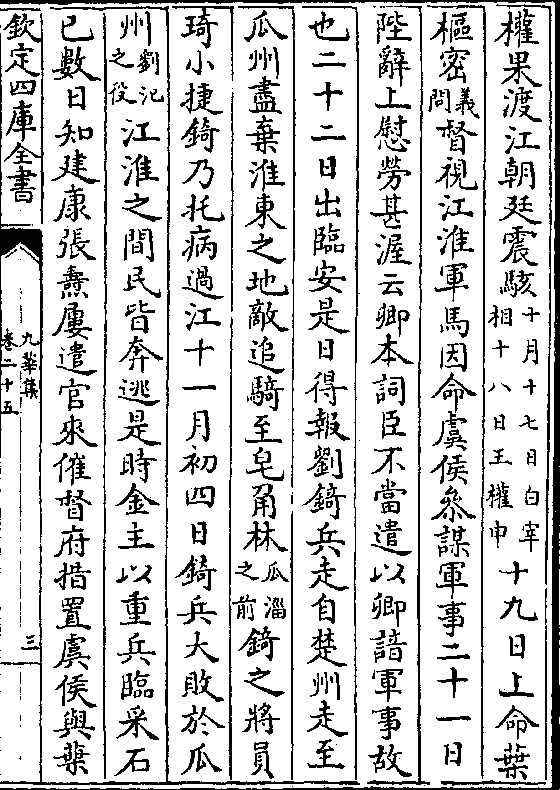 權果渡江朝廷震駭十月十七日白宰相十八日王權申十九日上命葉
樞密義問督視江淮軍馬因命虞侯叅謀軍事二十一日
陛辭上慰勞甚渥云卿本詞臣不當遣以卿諳軍事故
也二十二日出臨安是日得報劉錡兵走自楚州走至
瓜州盡棄淮東之地敵追騎至皂角林瓜淄之前錡之將員
琦小捷錡乃托病過江十一月初四日錡兵大敗於瓜
州劉汜之役江淮之間民皆奔逃是時金主以重兵臨采石
已數日知建康張燾屢遣官來催督府措置虞侯與葉
欽定四庫全書
九華集
卷二十五
三